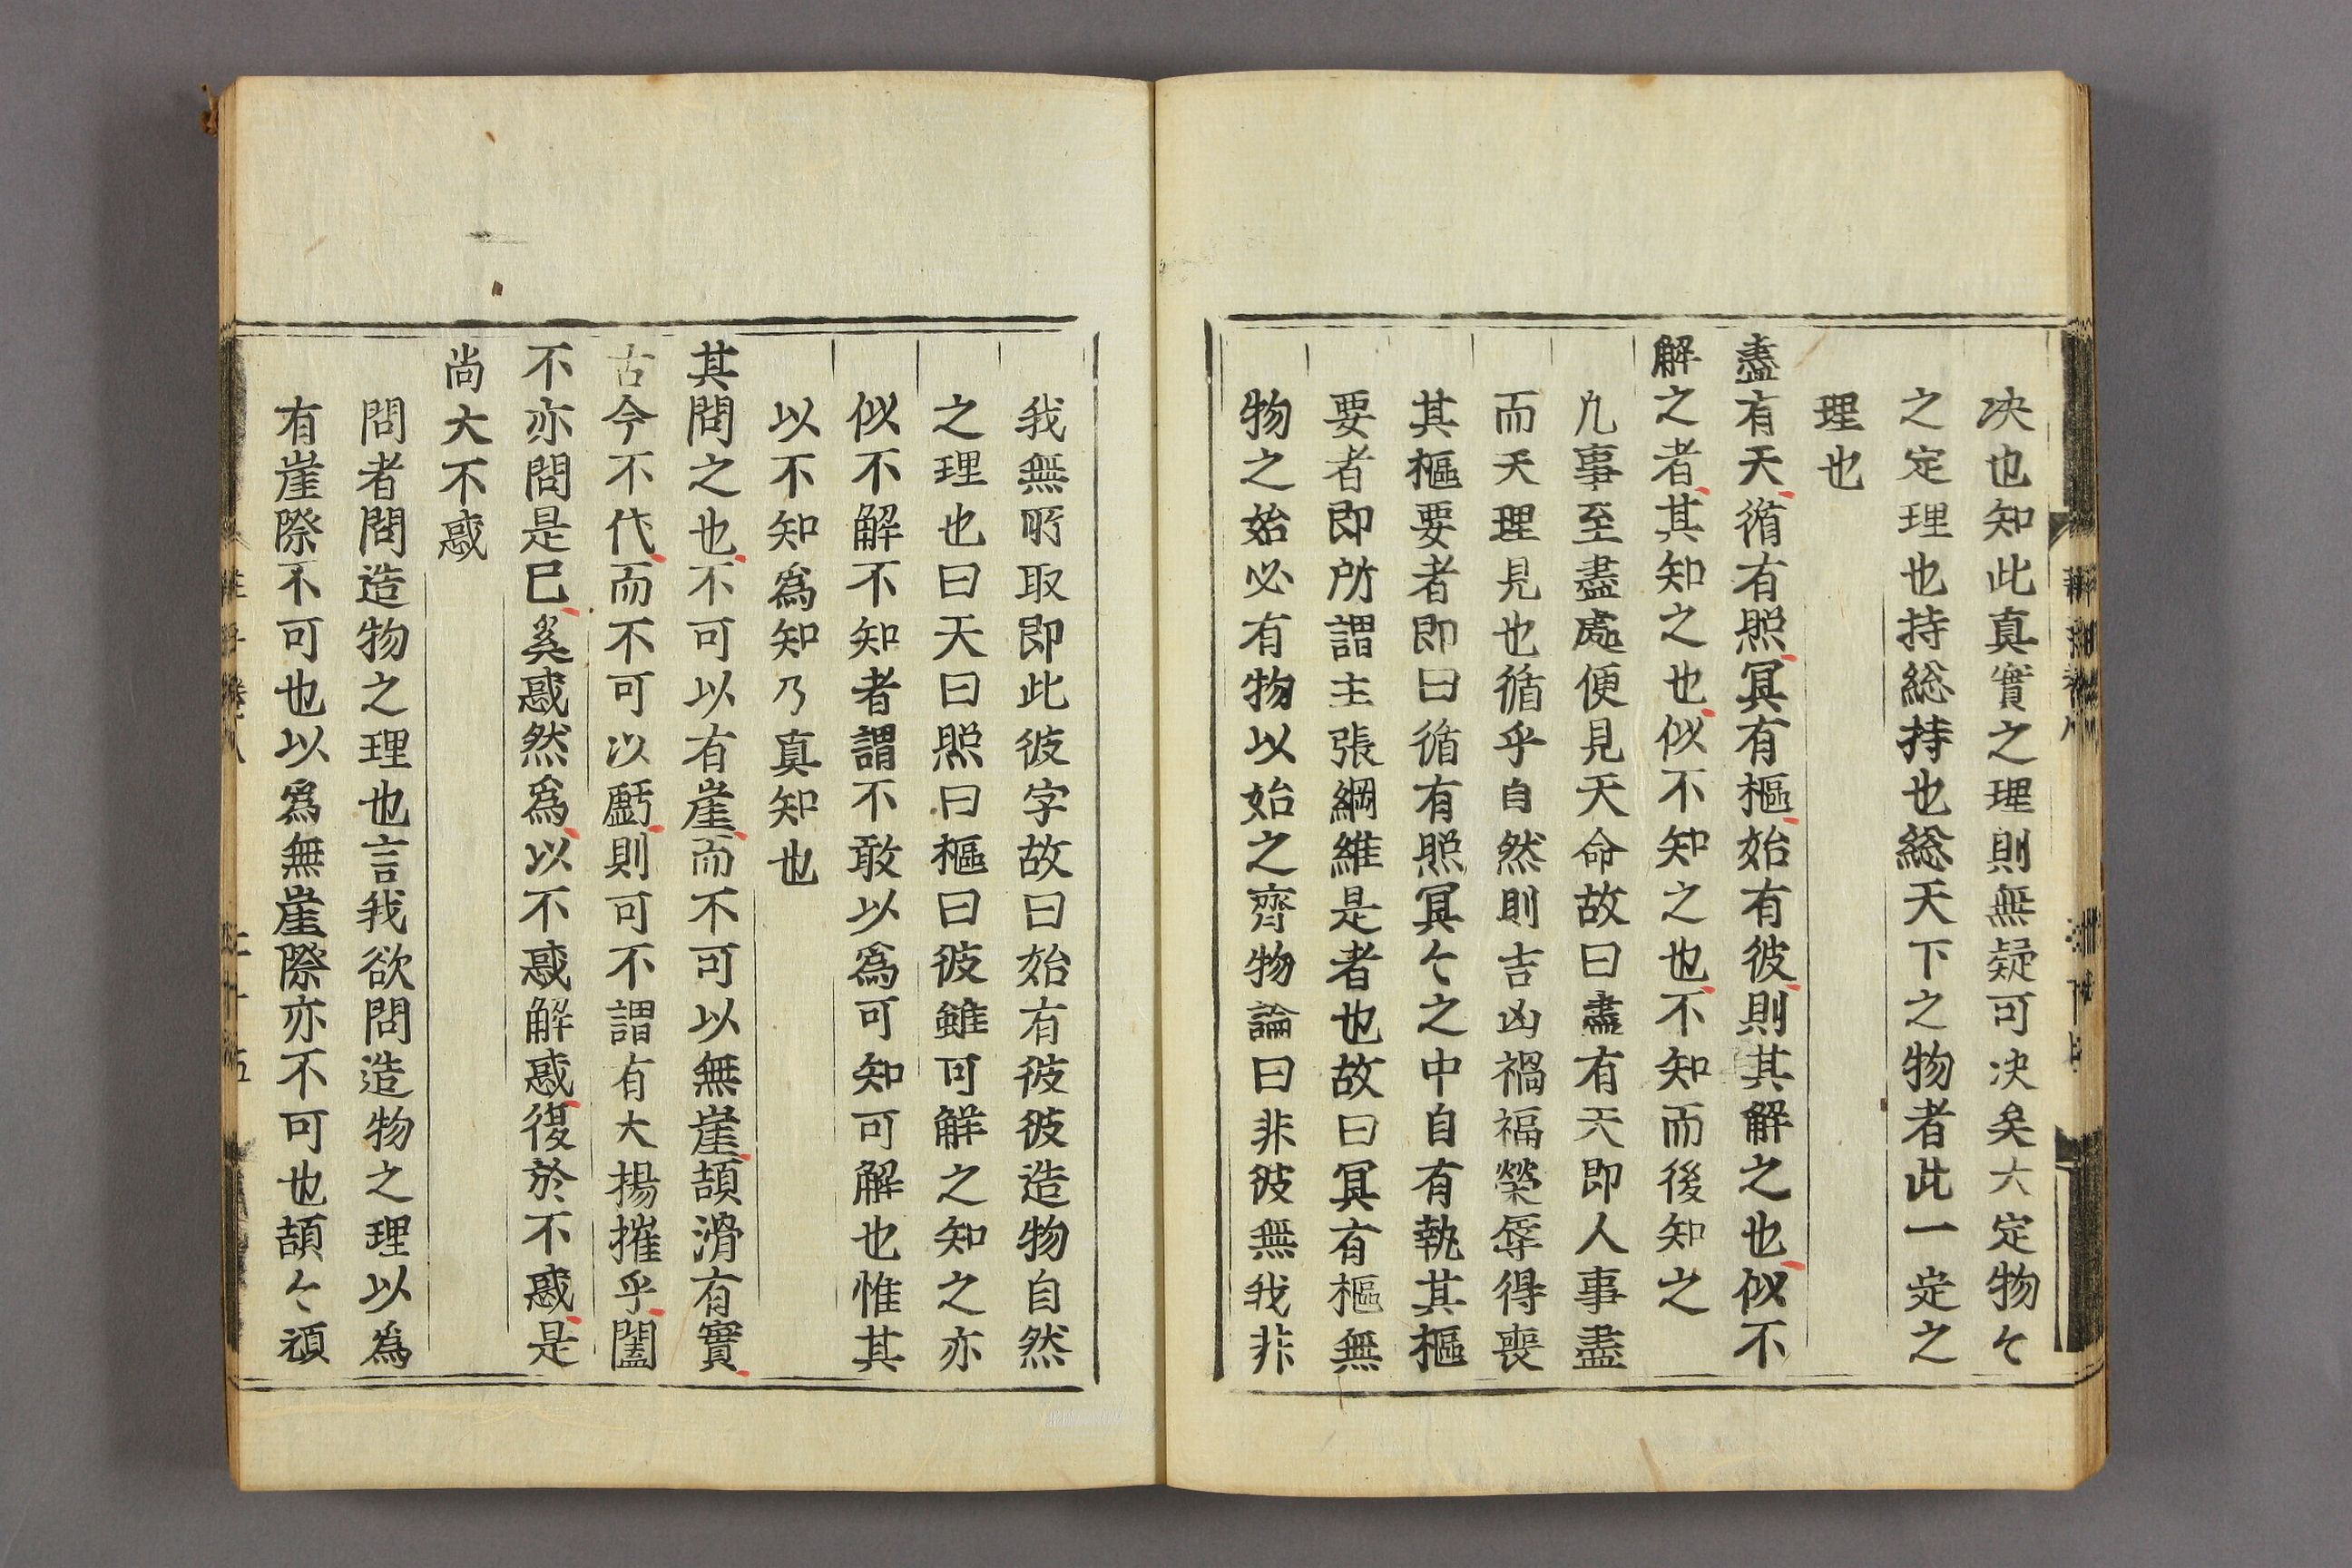 决也知此真實之理則無疑可决矣大定物〻
之定理也持総持也総天下之物者此一定之
理也
盡有天循有照冥有樞始有彼則其解之也似不
解之者其知之也似不知之也不知而後知之
凢事至盡處便見天命故曰盡有天即人事盡
而天理見也循乎自然則吉凶禍福榮辱得喪
其樞要者即曰循有照冥〻之中自有執其樞
要者即所謂主張綱維是者也故曰冥有樞無
物之始必有物以始之齊物論曰非彼無我非
我無所取即此彼字故曰始有彼彼造物自然
之理也曰天曰照曰樞曰彼雖可觧之知之亦
似不解不知者謂不敢以爲可知可解也惟其
以不知爲知乃真知也
其問之也不可以有崖而不可以無崖頡滑有實
古今不代而不可以虧則可不謂有大揚搉乎闔
不亦問是已奚惑然爲以不惑解惑復於不惑是
尚大不惑
問者問造物之理也言我欲問造物之理以爲
有崖際不可也以爲無崖際亦不可也頡〻頏